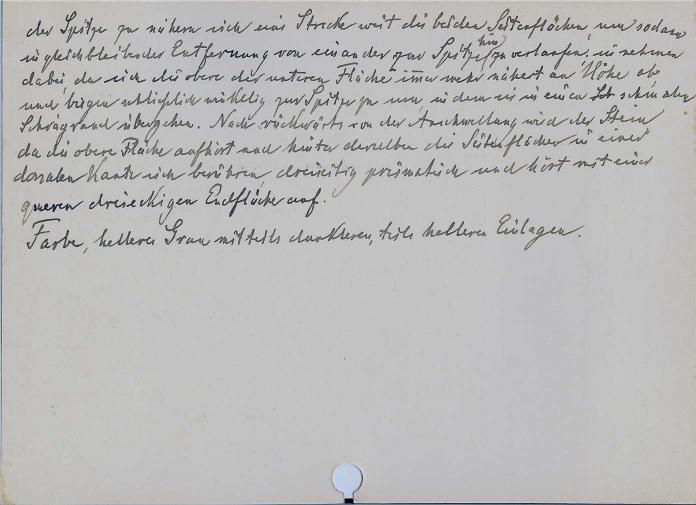 der Spitze zu nähern sich eine Strecke weit die beiden Seitenflächen, um sodann
in gleichbleibender Entfernung von einander zur Spitze hin zu verlaufen, sie nehmen
dabei, da sich die obere der unteren Fläche immer mehr nähert an Höhe ab
und biegen schließlich winkelig zur Spitze zu um, indem sie in einen schmalen
Schrägrand übergehen. Nach rückwärts von der Anschwellung wird der Stein
da die obere Fläche aufhört und hinter derselben die Seitenflächen in einer
dorsalen Kante sich berühren dreiseitig prismatisch und hört mit einer
queren dreieckigen Endfläche auf.
Farbe, helleres Grau mit teils dunkleren, teils helleren Einlagen.